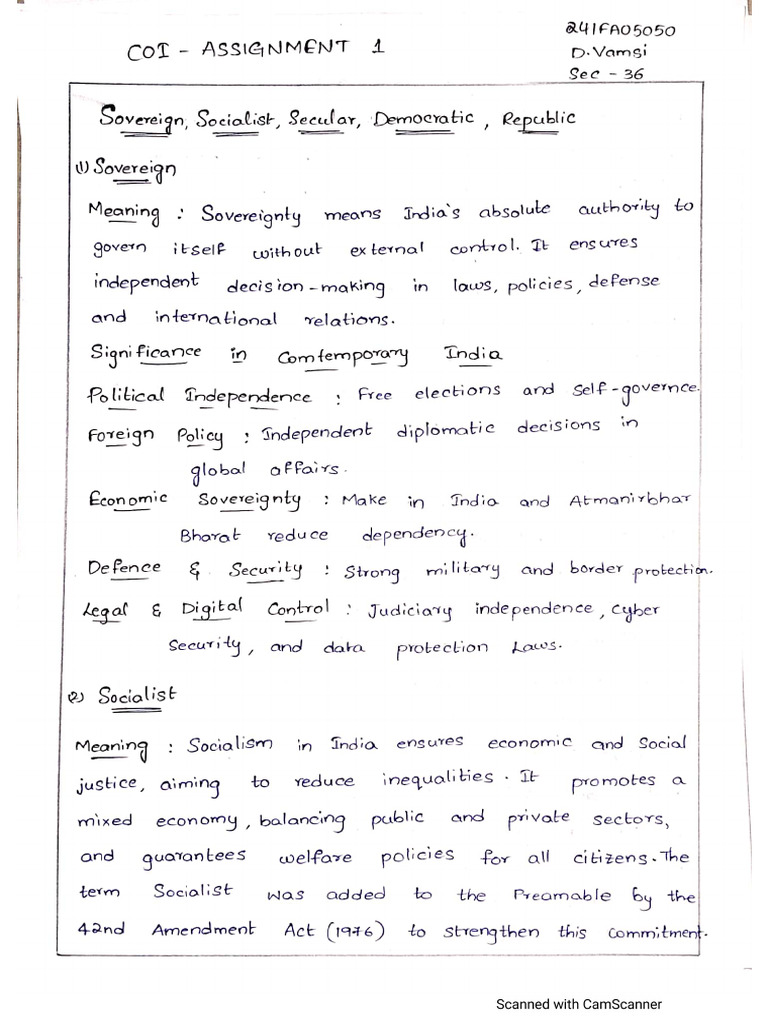 COI - ASSIGNMENT 1
241FA05050
D.Vamsi
Sec - 36
Sovereign, Socialist, Secular, Democratic, Republic
(1) Sovereign
Meaning : Sovereignty means India's absolute authority to
govern itself without external control. It ensures
independent decision-making in laws, policies, defense
and international relations.
Significance in Comtemporary India
Political Independence : Free elections and Self-governce.
Foreign Policy : Independent diplomatic decisions in
global affairs.
Economic Sovereignty : Make in India and Atmanirbhar
Bharat reduce dependency.
Defence & Security : Strong military and border protection.
Legal & Digital Control : Judiciary independence, Cyber
Security, and data protection Laws.
(2) Socialist
Meaning : Socialism in India ensures economic and Social
justice, aiming to reduce inequalities. It promotes a
mixed economy, balancing public and private sectors,
and guarantees welfare policies for all citizens. The
term Socialist was added to the Preamable by the
42nd Amendment Act (1976) to strengthen this commitment.
Scanned with CamScanner